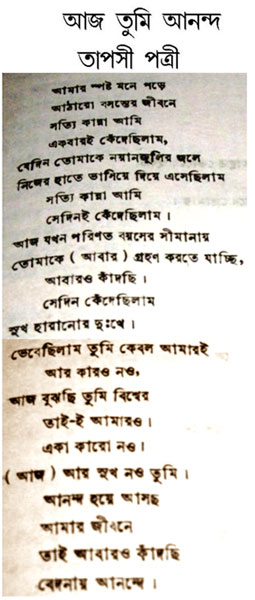 আজ তুমি আনন্দ
তাপসী পত্রী
আমার স্পষ্ট মনে পড়ে
আঠারো বসন্তের জীবনে
সত্যি কান্না আমি
একবারই কেঁদেছিলাম,
যেদিন তোমাকে নয়ানজুলির জলে
নিজের হাতে ভাসিয়ে দিয়ে এসেছিলাম
সত্যি কান্না আমি
সেদিনই কেঁদেছিলাম ।
আজ যখন পরিণত বয়সের সীমানায়
তোমাকে ( আবার ) গ্রহণ করতে যাচ্ছি,
আবারও কাঁদছি ।
সেদিন কেঁদেছিলাম
সুখ হারানোর দুঃখে ।
ভেবেছিলাম তুমি কেবল আমারই
আর কারও নও,
আজ বুঝছি তুমি বিশ্বের
তাই-ই আমারও ।
একা কারো নও ।
( আজ ) আর সুখ নও তুমি ।
আনন্দ হয়ে আসছ
আমার জীবনে
তাই আবারও কাঁদছি
বেদনায় আনন্দে ।